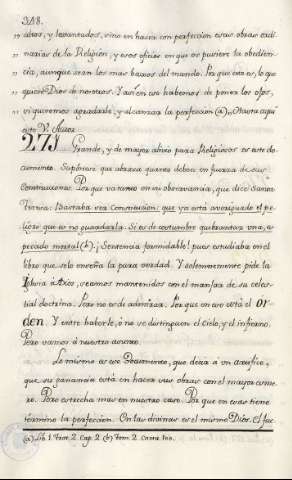 318.
„ altos, y levantados, sino en hacer con perfeccion esas obras ordi-
„ narias de la Religion, y esos oficios en que os pusiere la obedien-
„ cia, aunque sean los mas baxos del mundo. Por que esto es, lo que
quiere Dios de nosotros. Y asi en eso habemos de poner los ojos,
si queremos agradarle, y alcanzar la perfeccion (a). Hasta aqui
este V. Autor.
273 Grande, y de mayor alivio para Religiosas es este do-
cumento. Supone que abraza quanto deben en fuerza de sus
Constituciones. Por que va tanto en su observancia, que dice Santa
Teresa: Bastaba sea Constitucion: que ya está averiguado el pe-
ligro que es no guardarla. Si de costumbre quebrantais una, es
pecado mortal (b). ¡Sentencia formidable! pues estudiaba en el
libro que solo enseña la pura verdad. Y solemnemente pide la
Iglesia à Dios, seamos mantenidos con el manjar de su celes-
tial doctrina. Pero no es de admirar. Por que en eso está el or-
den. Y entre haberle, ó no se distinguen el Cielo, y el infierno.
Pero vamos á nuestro asunto.
Lo mismo es ese Documento, que decir à un artifice,
que su ganancia está en hacer sus obras con el mayor esme-
ro. Pero estrecha mas en nuestro caso. Por que en esas tiene
término la perfeccion. En las divinas es el mismo Dios. El fac-
(a) Lib. 1. Trat. 2. Cap. 2. (b) Tom. 2. Carta